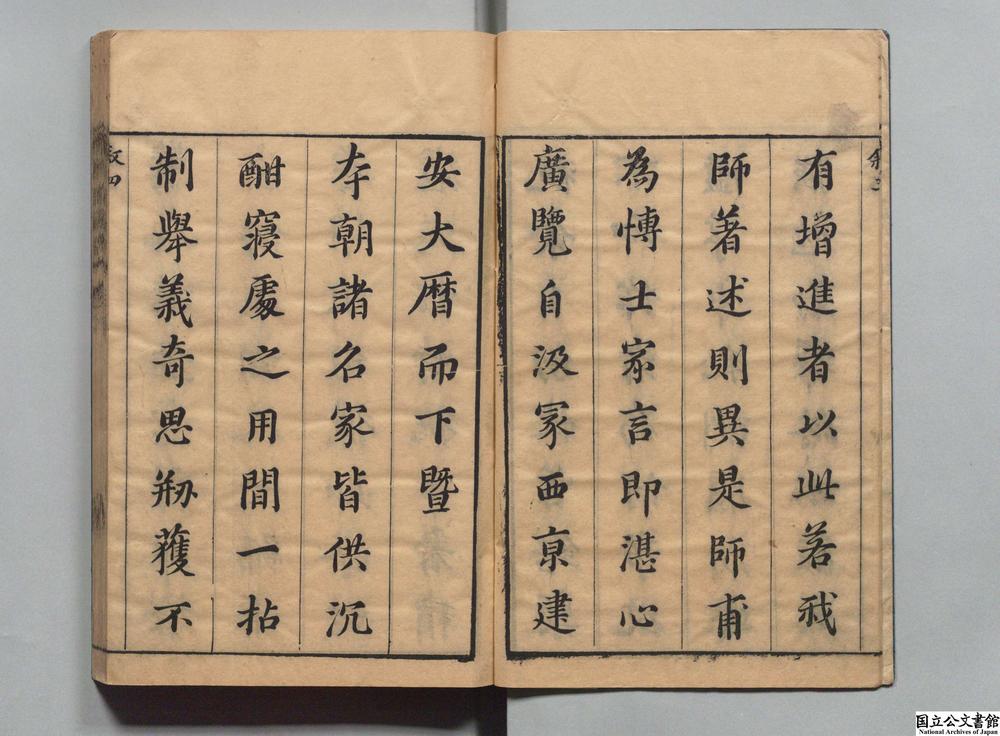 有增進者以此若我
師著述則異是師甫
為愽士家言即湛心
廣覽自汲冢西京建
安大曆而下暨
本朝諸名家皆供沉
酣寢處之用間一拈
制舉義奇思剏獲不
叙四
国立公文書館
National Archives of Japan